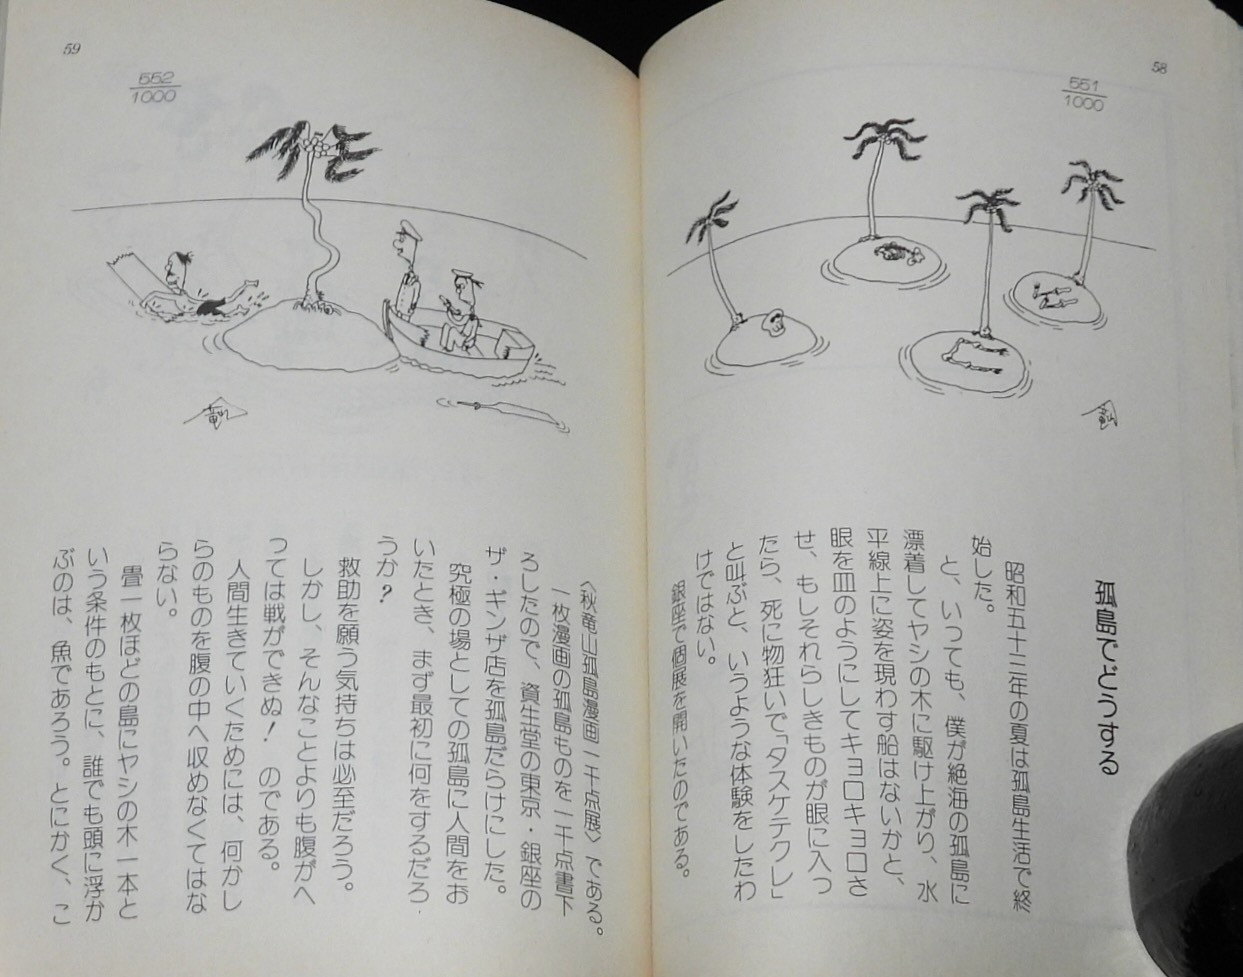 58
551
1000
孤島でどうする
昭和五十三年の夏は孤島生活で終
始した。
と、いっても、僕が絶海の孤島に
漂着してヤシの木に駆け上がり、水
平線上に姿を現わす船はないかと、
眼を皿のようにしてキョロキョロさ
せ、もしそれらしきものが眼に入っ
たら、死に物狂いで「タスケテクレ」
と叫ぶと、いうような体験をしたわ
けではない。
銀座で個展を開いたのである。
59
552
1000
〈秋竜山孤島漫画一千点展〉である。
一枚漫画の孤島ものを一千点書下
ろしたので、資生堂の東京・銀座の
ザ・ギンザ店を孤島だらけにした。
究極の場としての孤島に人間をお
いたとき、まず最初に何をするだろ
うか?
救助を願う気持ちは必至だろう。
しかし、そんなことよりも腹がへ
っては戦ができぬ! のである。
人間生きていくためには、何かし
らのものを腹の中へ収めなくてはな
らない。
畳一枚ほどの島にヤシの木一本と
いう条件のもとに、誰でも頭に浮か
ぶのは、魚であろう。とにかく、こ